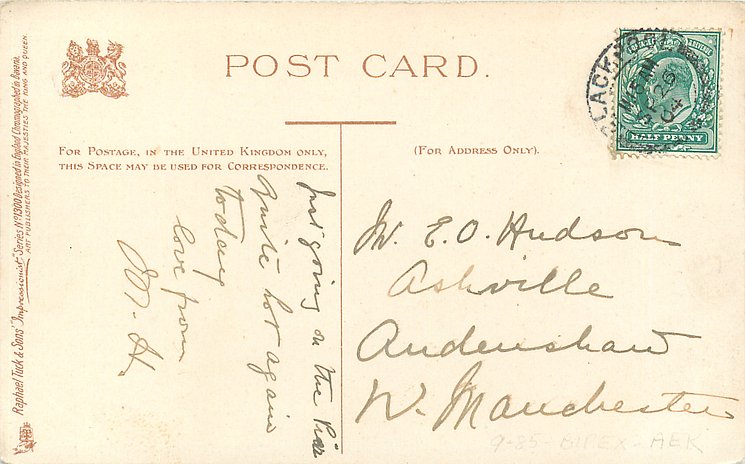 POST CARD.
FOR POSTAGE, IN THE UNITED KINGDOM ONLY,
THIS SPACE MAY BE USED FOR CORRESPONDENCE.
(FOR ADDRESS ONLY).
HALF PENNY
Just going on the Pier
Quite hot again
today
love from
M. H.
Mr. E. O. Hudson
Ashville
Audenshaw
Nr. Manchester
9-85-BIPEX-AEK
Raphael Tuck & Sons' "Impressionist" Series No 1300 Designed in England Chromographed in Bavaria
ART PUBLISHERS TO THEIR MAJESTIES THE KING AND QUEEN.